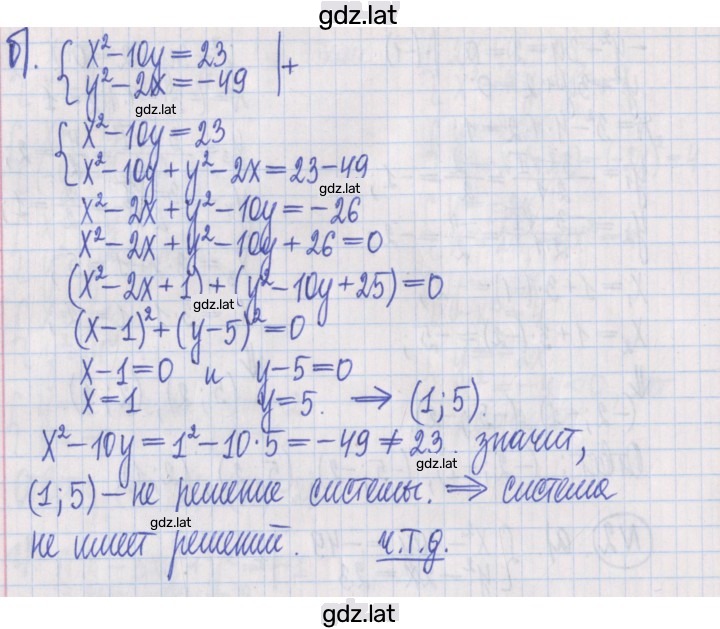 gdz.lat
б). { x² − 10y = 23
y² − 2x = −49 | +
gdz.lat
{ x² − 10y = 23
x² − 10y + y² − 2x = 23 − 49
gdz.lat
x² − 2x + y² − 10y = −26
x² − 2x + y² − 10y + 26 = 0
(x² − 2x + 1) + (y² − 10y + 25) = 0
gdz.lat
(x − 1)² + (y − 5)² = 0
x − 1 = 0 и y − 5 = 0
x = 1 y = 5. ⟹ (1; 5).
x² − 10y = 1² − 10·5 = −49 ≠ 23. значит,
gdz.lat
(1; 5) – не решение системы. ⟹ система
gdz.lat
не имеет решений. ч.т.д.
gdz.lat